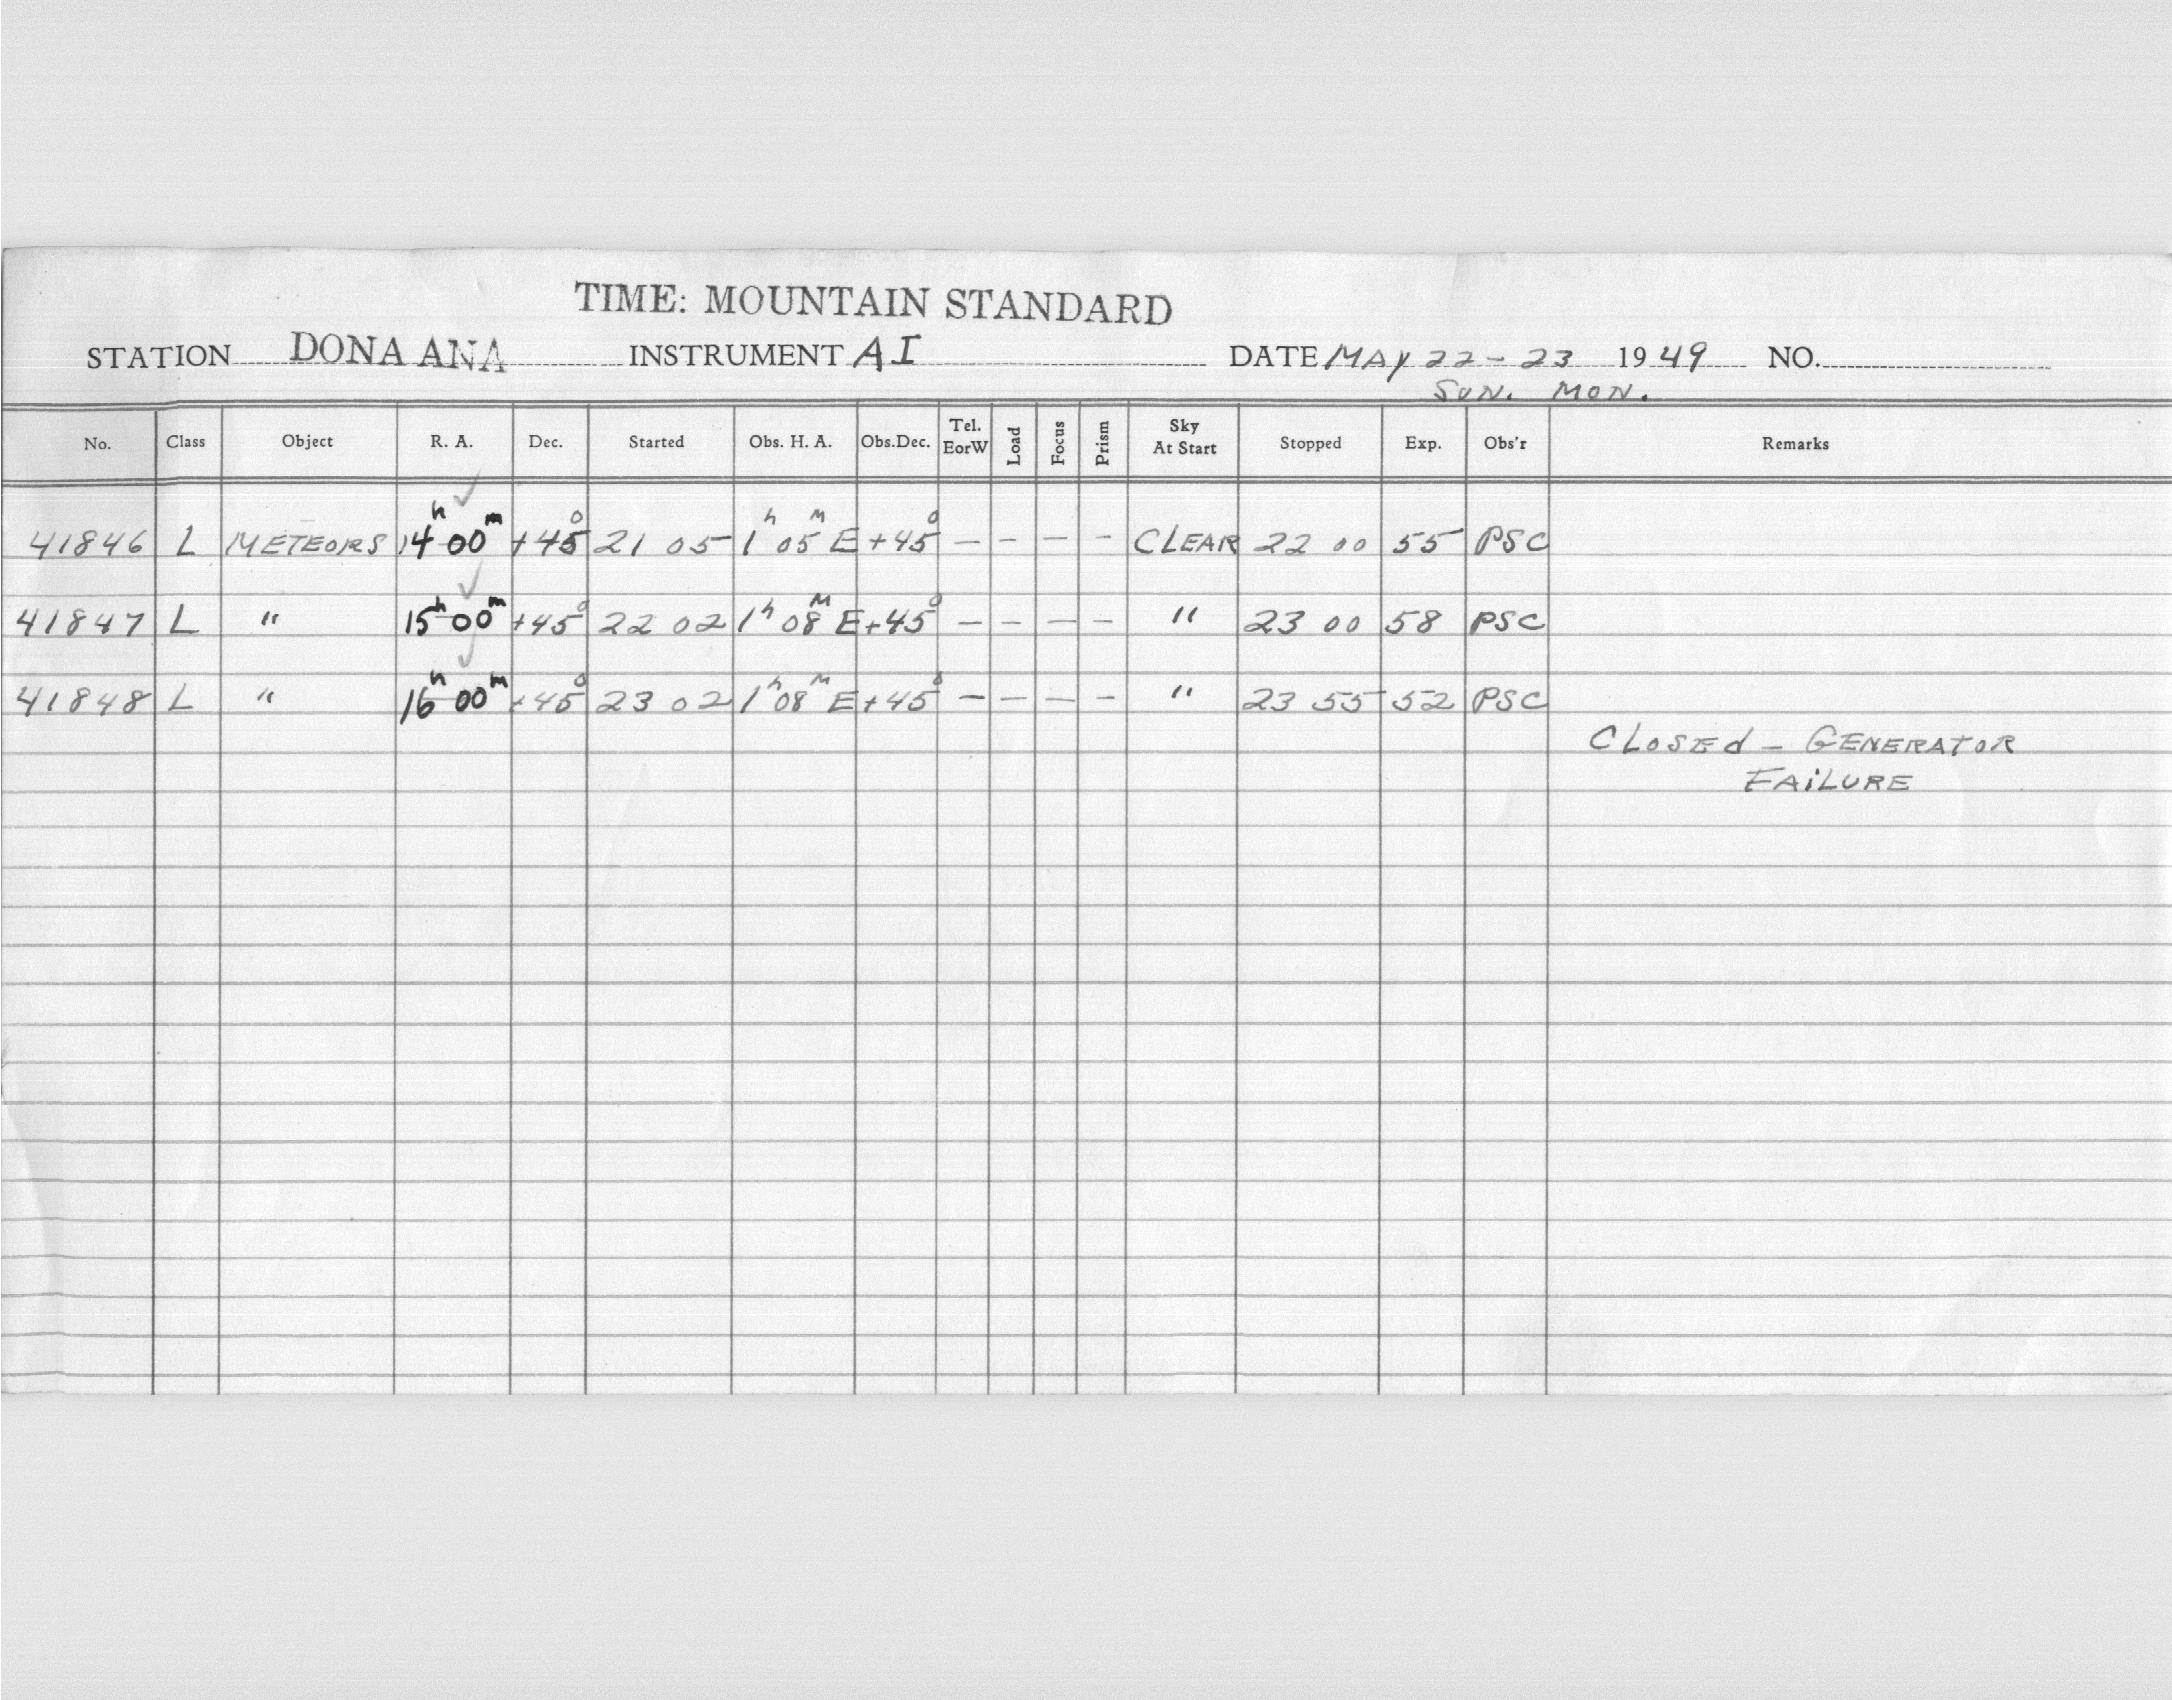 TIME: MOUNTAIN STANDARD
STATION DONA ANA INSTRUMENT AI DATE MAY 22-23 1949 NO.
SUN. MON.
No. Class Object R. A. Dec. Started Obs. H. A. Obs.Dec. Tel. EorW Load Focus Prism Sky At Start Stopped Exp. Obs'r Remarks
41846 L METEORS 14h 00m +45° 21 05 1h 05m E +45° — — — — CLEAR 22 00 55 PSC
41847 L " 15h 00m +45° 22 02 1h 08m E +45° — — — — " 23 00 58 PSC
41848 L " 16h 00m +45° 23 02 1h 08m E +45° — — — — " 23 55 52 PSC
CLOSEd - GENERATOR
FAiLURE